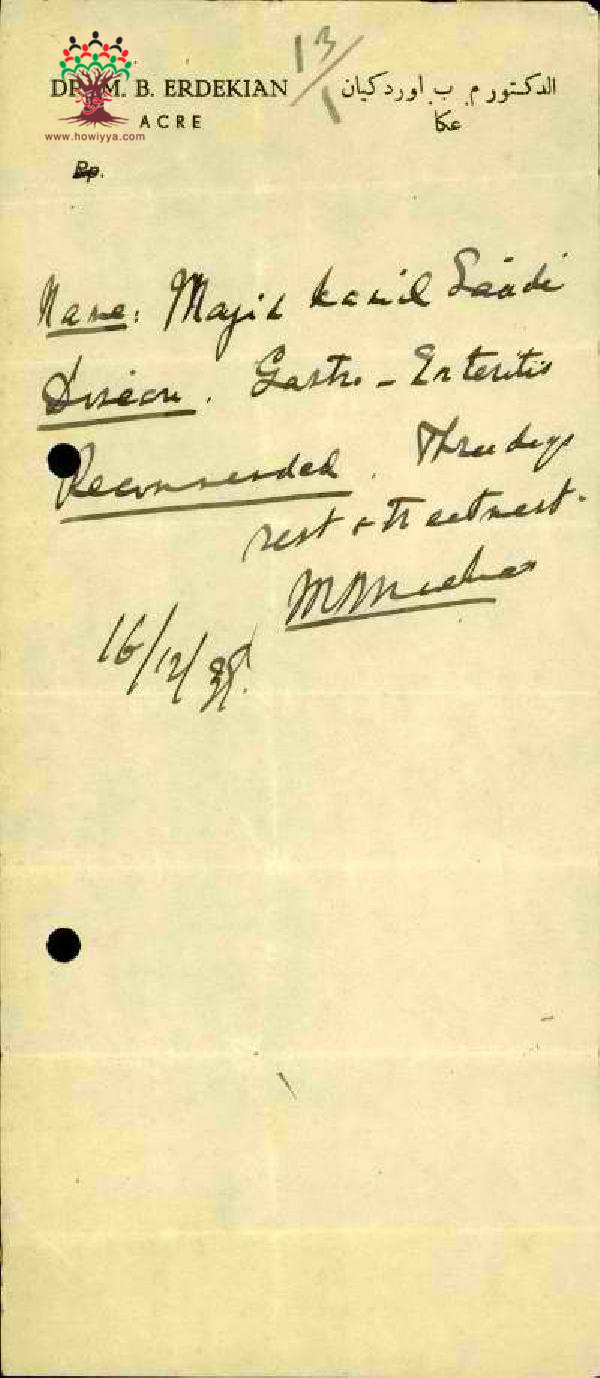 13/1
DR. M. B. ERDEKIAN
الدكتور م. ب. اوردكيان
ACRE
عكا
www.howiyya.com
Rp.
Name: Majid Kamil Saadi
Disease. Gastro-Enteritis
Recommended. Three days
rest & treatment.
16/12/38.